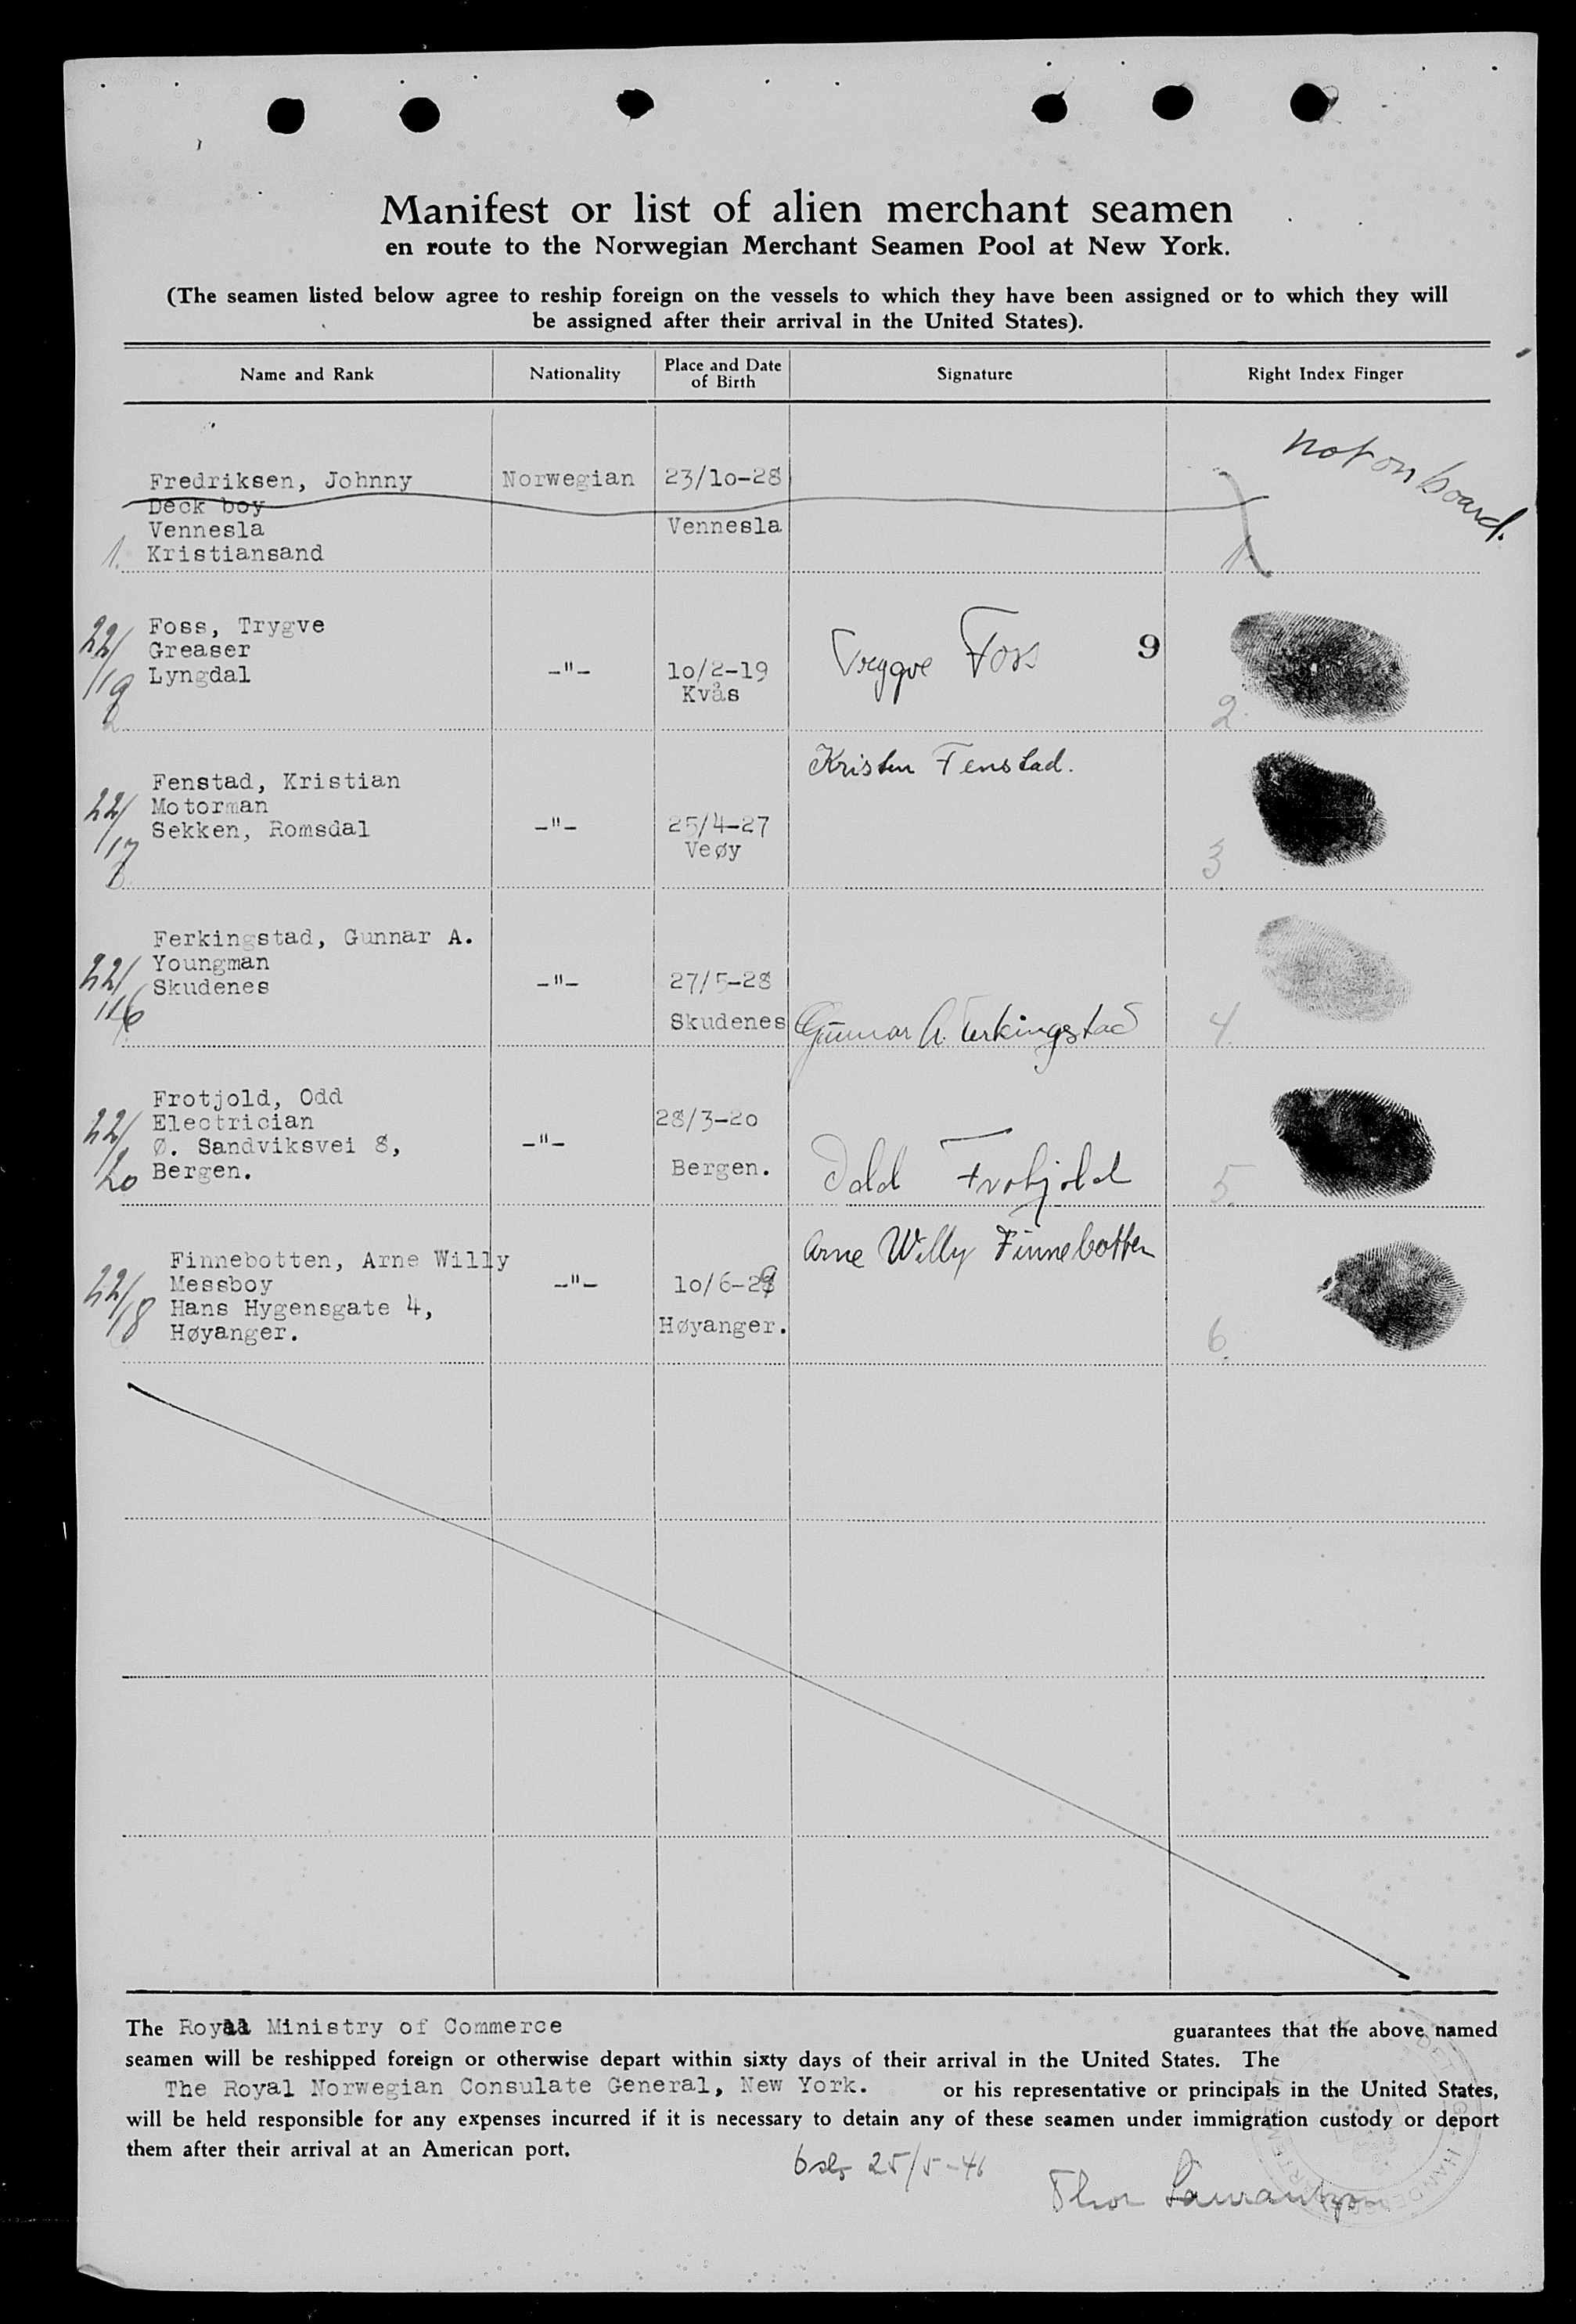 Manifest or list of alien merchant seamen
en route to the Norwegian Merchant Seamen Pool at New York.
(The seamen listed below agree to reship foreign on the vessels to which they have been assigned or to which they will
be assigned after their arrival in the United States).
Name and Rank Nationality Place and Date of Birth Signature Right Index Finger
not on board.
Fredriksen, Johnny Norwegian 23/10-28
Deck boy
Vennesla Vennesla
1. Kristiansand 1.
22/19 Foss, Trygve
Greaser
Lyngdal -"- 10/2-19 Trygve Foss 9
Kvås
2. 2.
Kristen Fenstad.
22/17 Fenstad, Kristian
Motorman
Sekken, Romsdal -"- 25/4-27
Veøy
3. 3
22/16 Ferkingstad, Gunnar A.
Youngman
Skudenes -"- 27/5-28
Skudenes Gunnar A. Ferkingstad
4. 4.
22/20 Frotjold, Odd
Electrician 28/3-20
Ø. Sandviksvei 8, -"-
Bergen. Bergen. Odd Frotjold
5.
Arne Willy Finnebotten
22/18 Finnebotten, Arne Willy
Messboy -"- 10/6-29
Hans Hygensgate 4,
Høyanger. Høyanger.
6.
The Royal Ministry of Commerce guarantees that the above named
seamen will be reshipped foreign or otherwise depart within sixty days of their arrival in the United States. The
The Royal Norwegian Consulate General, New York. or his representative or principals in the United States,
will be held responsible for any expenses incurred if it is necessary to detain any of these seamen under immigration custody or deport
them after their arrival at an American port.
25/5-46
Thor